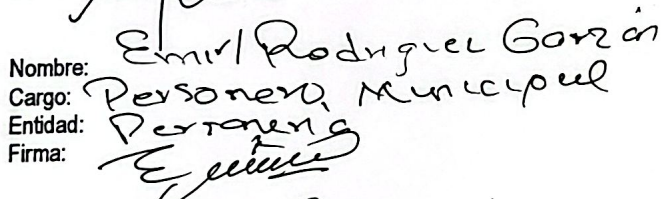 Nombre: Emirl Rodriguez Garzón
Cargo: Personero Municipal
Entidad: Personería
Firma: